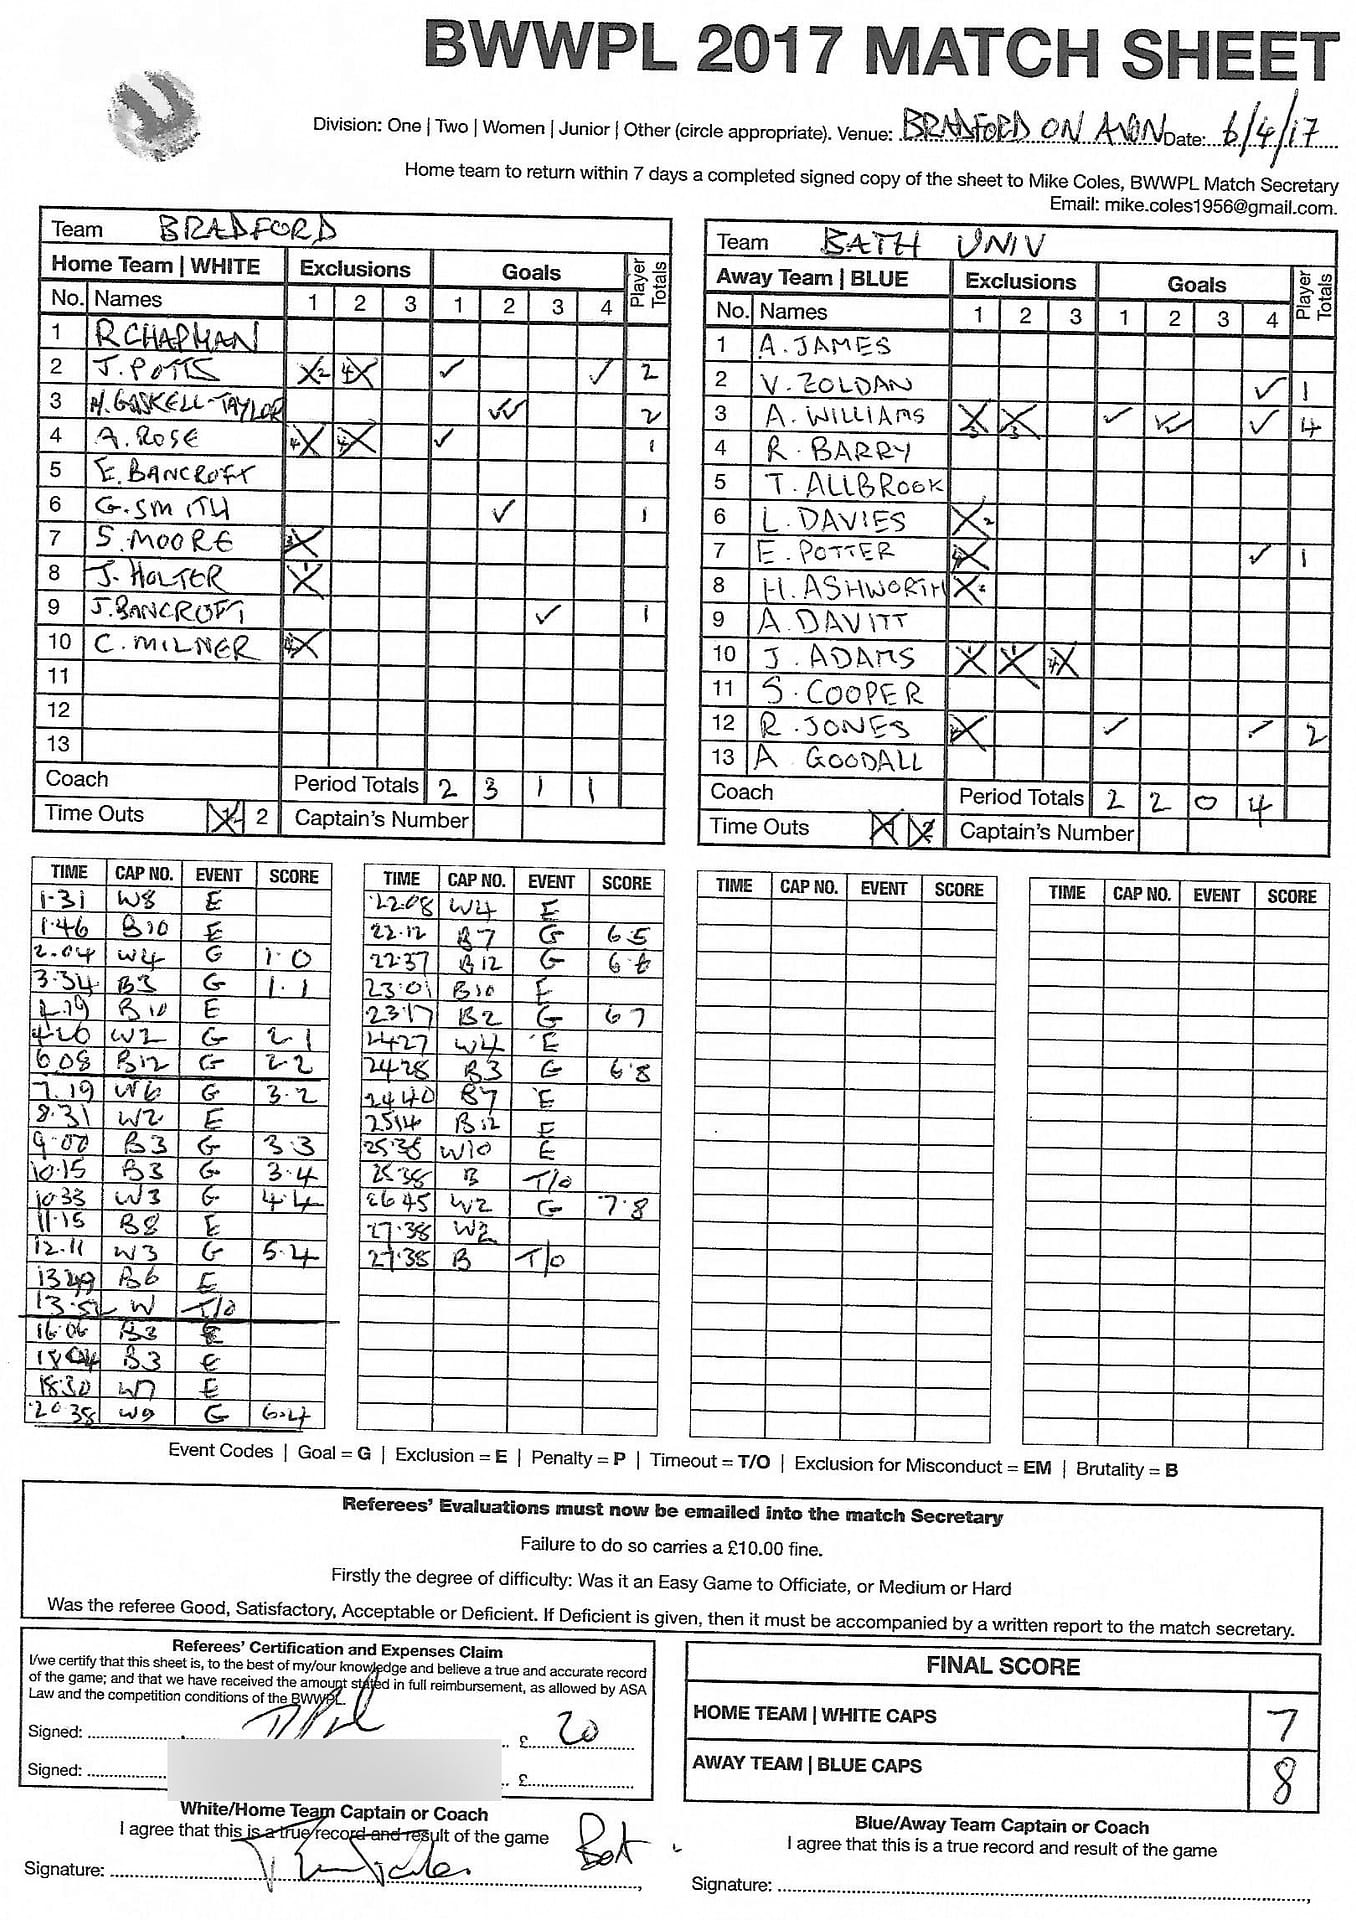 BWWPL 2017 MATCH SHEET
Division: One | Two | Women | Junior | Other (circle appropriate). Venue: BRADFORD ON AVON Date: 6/4/17
Home team to return within 7 days a completed signed copy of the sheet to Mike Coles, BWWPL Match Secretary
Email: mike.coles1956@gmail.com.
Team BRADFORD
Home Team | WHITE Exclusions Goals Player Totals
No. Names 1 2 3 1 2 3 4
1 R CHAPMAN
2 J. POTTS X2 4X ✓ ✓ 2
3 H. GASKELL-TAYLOR ✓✓ 2
4 A. ROSE 4X 4X ✓ 1
5 E. BANCROFT
6 G. SMITH ✓ 1
7 S. MOORE 3X
8 J. HOLTER X1
9 J. BANCROFT ✓ 1
10 C. MILNER 4X
11
12
13
Coach Period Totals 2 3 1 1
Time Outs X 2 Captain's Number
Team BATH UNIV
Away Team | BLUE Exclusions Goals Player Totals
No. Names 1 2 3 1 2 3 4
1 A. JAMES
2 V. ZOLDAN ✓ 1
3 A. WILLIAMS X3 X3 ✓ ✓✓ ✓ 4
4 R. BARRY
5 T. ALLBROOK
6 L. DAVIES X2
7 E. POTTER 4X ✓ 1
8 H. ASHWORTH X2
9 A. DAVITT
10 J. ADAMS X1 X1 4X
11 S. COOPER
12 R. JONES 4X ✓ ✓ 2
13 A GOODALL
Coach Period Totals 2 2 0 4
Time Outs X1 X2 Captain's Number
TIME CAP NO. EVENT SCORE
1·31 W8 E
1·46 B10 E
2.04 W4 G 1·0
3·34 B3 G 1.1
4.19 B10 E
4·20 W2 G 2·1
6.08 B12 G 2·2
7.19 W6 G 3·2
8·31 W2 E
9·07 B3 G 3·3
10·15 B3 G 3·4
10·33 W3 G 4·4
11·15 B8 E
12.11 W3 G 5·4
1349 B6 E
13·52 W T/O
16·06 B3 E
1804 B3 E
18·30 W7 E
20·38 W9 G 6·4
TIME CAP NO. EVENT SCORE
22·08 W4 E
22·12 B7 G 6·5
22·37 B12 G 6·6
23·01 B10 E
23·17 B2 G 6 7
2427 W4 E
2428 B3 G 6·8
2440 B7 E
2514 B12 E
25·38 W10 E
25·38 B T/O
26 45 W2 G 7·8
27·38 W2
27·38 B T/O
TIME CAP NO. EVENT SCORE
TIME CAP NO. EVENT SCORE
Event Codes | Goal = G | Exclusion = E | Penalty = P | Timeout = T/O | Exclusion for Misconduct = EM | Brutality = B
Referees' Evaluations must now be emailed into the match Secretary
Failure to do so carries a £10.00 fine.
Firstly the degree of difficulty: Was it an Easy Game to Officiate, or Medium or Hard
Was the referee Good, Satisfactory, Acceptable or Deficient. If Deficient is given, then it must be accompanied by a written report to the match secretary.
Referees' Certification and Expenses Claim
I/we certify that this sheet is, to the best of my/our knowledge and believe a true and accurate record
of the game; and that we have received the amount stated in full reimbursement, as allowed by ASA
Law and the competition conditions of the BWWPL.
Signed: £ 20
Signed: £
FINAL SCORE
HOME TEAM | WHITE CAPS 7
AWAY TEAM | BLUE CAPS 8
White/Home Team Captain or Coach
I agree that this is a true record and result of the game
Signature:
Blue/Away Team Captain or Coach
I agree that this is a true record and result of the game
Signature: